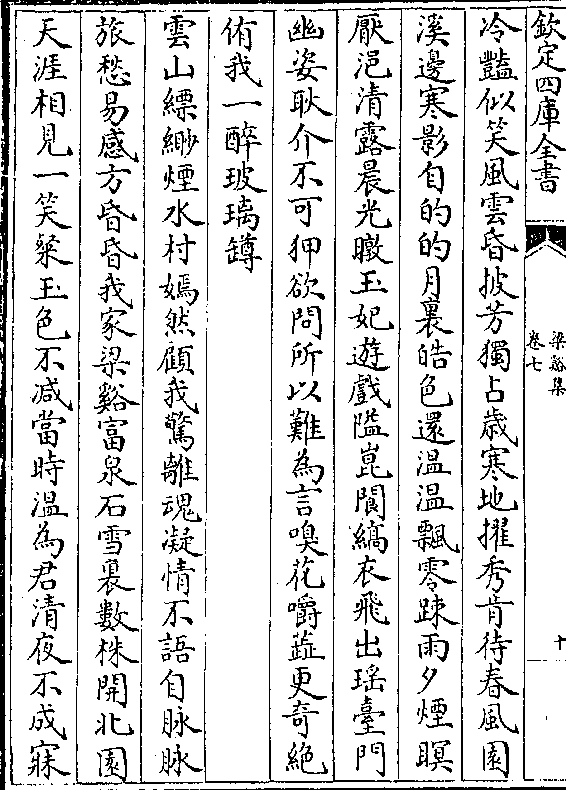 欽定四庫全書
梁谿集
卷七
十
冷豔似笑風雲昏披芳獨占歳寒地擢秀肯待春風園
溪邊寒影自的的月裏皓色還温温飄零踈雨夕煙瞑
厭浥清露晨光暾玉妃遊戲隘崑閬縞衣飛出瑶臺門
幽姿耿介不可狎欲問所以難為言嗅花嚼蘂更奇絶
侑我一醉玻璃罇
雲山縹緲煙水村嫣然顧我驚離魂凝情不語自脉脉
旅愁易感方昏昏我家梁谿富泉石雪裏數株開北園
天涯相見一笑粲玉色不减當時温為君清夜不成寐